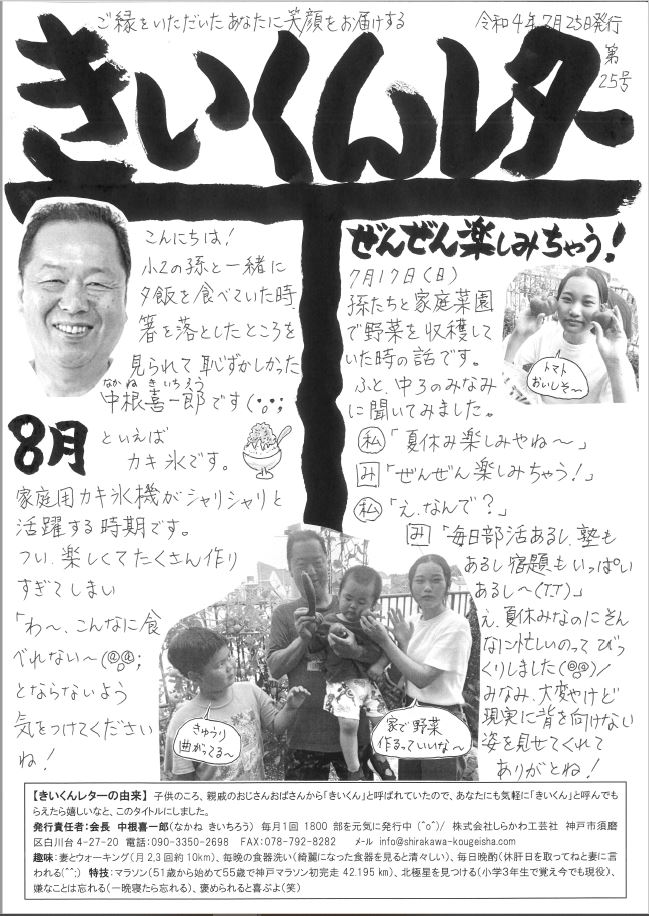 ご縁をいただいたあなたに笑顔をお届けする
令和4年7月25日発行
第
25号
きいくんレター
こんにちは!
小2の孫と一緒に
夕飯を食べていた時
箸を落としたところを
見られて恥ずかしかった
なかね きいちろう
中根喜一郎です(･;･;
8月
といえば
カキ氷です。
家庭用カキ氷機がシャリシャリと
活躍する時期です。
つい、楽しくてたくさん作り
すぎてしまい
「わ〜、こんなに食
べれない〜(@@;
とならないよう
気をつけてください
ね!
ぜんぜん楽しみちゃう!
7月17日(日)
孫たちと家庭菜園
で野菜を収穫して
いた時の話です。
ふと、中3のみなみ
に聞いてみました。
私「夏休み楽しみやね〜」
み「ぜんぜん楽しみちゃう!」
私「え、なんで?」
み「毎日部活あるし、塾も
あるし宿題もいっぱい
あるし〜(T.T)」
え、夏休みなのにそん
なに忙しいのってびっ
くりしました(@@)/
みなみ、大変やけど
現実に背を向けない
姿を見せてくれて
ありがとね!
トマト
おいしそ〜
きゅうり
曲がってる〜
家で野菜
作るっていいな〜
【きいくんレターの由来】 子供のころ、親戚のおじさんおばさんから「きいくん」と呼ばれていたので、あなたにも気軽に「きいくん」と呼んでも
らえたら嬉しいなと、このタイトルにしました。
発行責任者:会長 中根喜一郎(なかね きいちろう) 毎月1回 1800 部を元気に発行中 (^o^)/ 株式会社しらかわ工芸社 神戸市須磨
区白川台 4-27-20 電話:090-3350-2698 FAX:078-792-8282 メール info@shirakawa-kougeisha.com
趣味:妻とウォーキング(月 2,3 回約 10km)、毎晩の食器洗い(綺麗になった食器を見ると清々しい)、毎日晩酌(休肝日を取ってねと妻に言
われる(^^;) 特技:マラソン(51歳から始めて55歳で神戸マラソン初完走 42.195 km)、北極星を見つける(小学3年生で覚え今でも現役)、
嫌なことは忘れる(一晩寝たら忘れる)、褒められると喜ぶよ(笑)